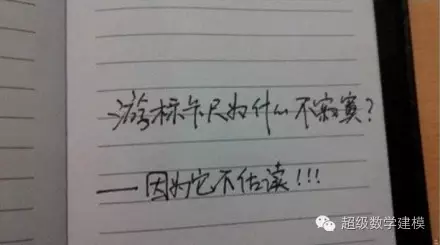 游标卡尺为什么不寂寞？
——因为它不估读!!!
超级数学建模